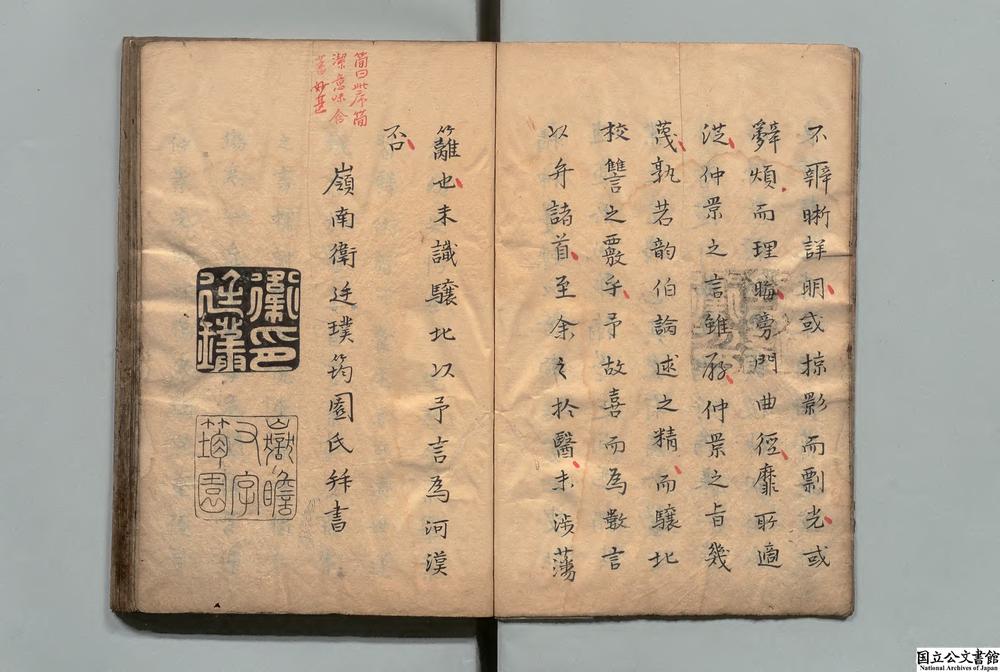 不辧晰詳明或掠影而剽光或
辭煩而理晦旁門曲徑靡所適
從仲景之言雖存仲景之旨幾
蔑孰若韵伯論述之精而驤北
校讐之覈乎予故喜而為數言
以弁諸首至余之於醫未涉藩
籬也未識驤北以予言為河漠
否
嶺南衛廷璞筠園氏拜書
筠曰此序簡
潔意味含
蓄妙甚
衛印
廷璞
嶽瞻
又字
筠園
国立公文書館
National Archives of Japan